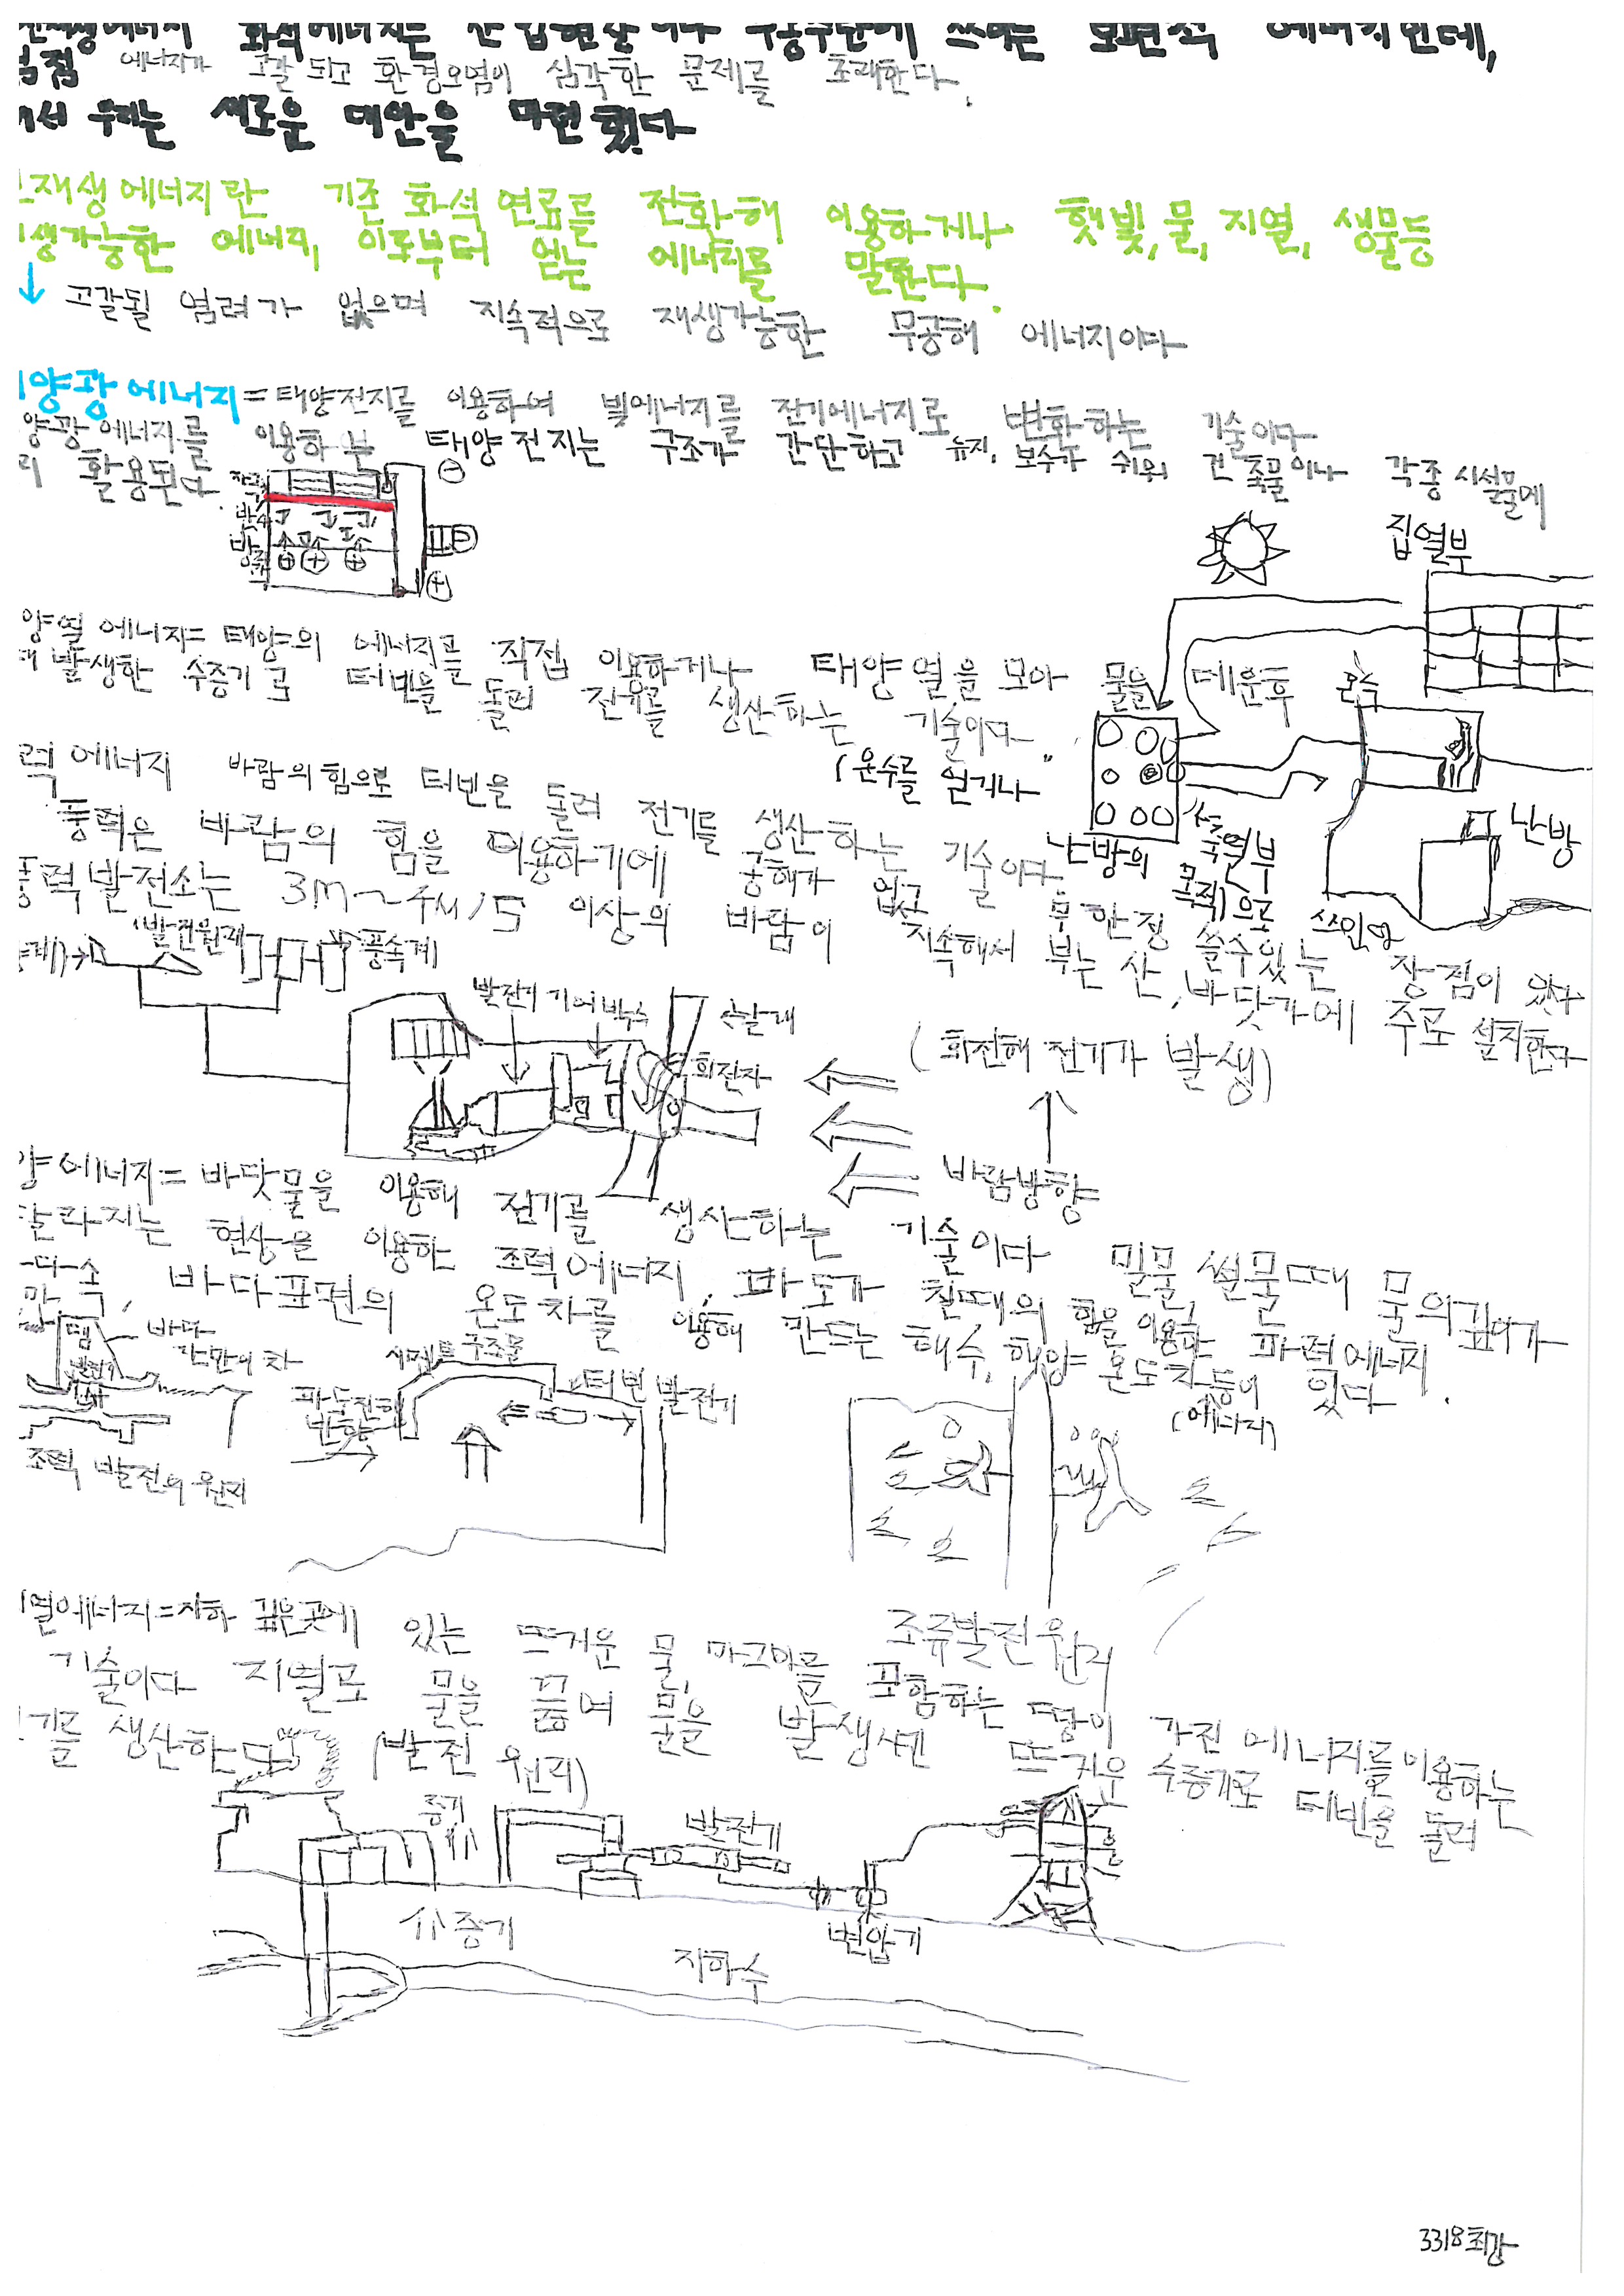 화석에너지는 산업현장이나 수송수단에 쓰이는 보편적 에너지인데,
에너지가 고갈되고 환경오염이 심각한 문제를 초래한다.
우리는 새로운 대안을 마련했다
재생에너지란 기존 화석연료를 전환해 이용하거나 햇빛, 물, 지열, 생물등
생가능한 에너지, 이로부터 얻는 에너지를 말한다.
↓ 고갈될 염려가 없으며 지속적으로 재생가능한 무공해 에너지이다
양광에너지=태양전지를 이용하여 빛에너지를 전기에너지로 변화하는 기술이다
양광에너지를 이용하는 태양전지는 구조가 간단하고 유지, 보수가 쉬워 건축물이나 각종 시설물에
활용된다.
⊖
⊕
집열부
양열에너지=태양의 에너지를 직접 이용하거나 태양열을 모아 물을 데운후
발생한 수증기로 터빈을 돌려 전류를 생산하는 기술이다
온수
(온수를 얻거나
난방의 목적으로 쓰인다
축열부
난방
력에너지 바람의 힘으로 터빈을 돌려 전기를 생산하는 기술이다.
풍력은 바람의 힘을 이용하기에 공해가 없고 무한정 쓸수있는 장점이 있다
풍력발전소는 3m~4m/s 이상의 바람이 지속해서 부는 산, 바닷가에 주로 설치한다
(발전원리
풍속계
발전기
기어박스
날개
회전자
(회전해 전기가 발생)
바람방향
양에너지=바닷물을 이용해 전기를 생산하는 기술이다 밀물, 썰물때 물의깊이가
달라지는 현상을 이용한 조력에너지, 파도가 칠때의 힘을 이용한 파력에너지,
바다표면의 온도차를 이용해 만드는 해수, 해양온도차 등이 있다.
(에너지)
댐
발전기
바다
시멘트 구조물
파도진행
방향
터빈 발전기
조력 발전의 원리
조류발전원리
열에너지=지하 깊은곳에 있는 뜨거운 물, 마그마를 포함하는 땅이 가진 에너지를 이용하는
기술이다 지열로 물을 끓여 물을 발생시켜 뜨거운 수증기로 터빈을 돌려
기를 생산한다
(발전 원리)
증기
발전기
증기
변압기
지하수
3318최강